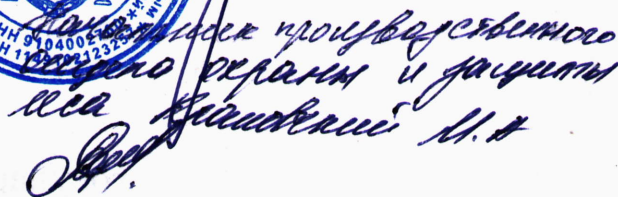 Начальник производственного
отдела охраны и защиты
леса М.А